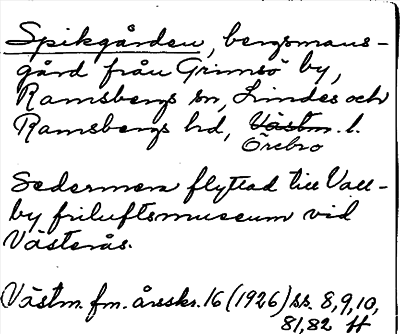 Spikgården, bergsmans-
gård från Grimsö by,
Ramsbergs sn, Lindes och
Ramsbergs hd, Västm. l.
Örebro
Sedermera flyttad till Vall-
by friluftsmuseum vid
Västerås.
Västm. fm. årsskr. 16 (1926) ss. 8, 9, 10,
81, 82